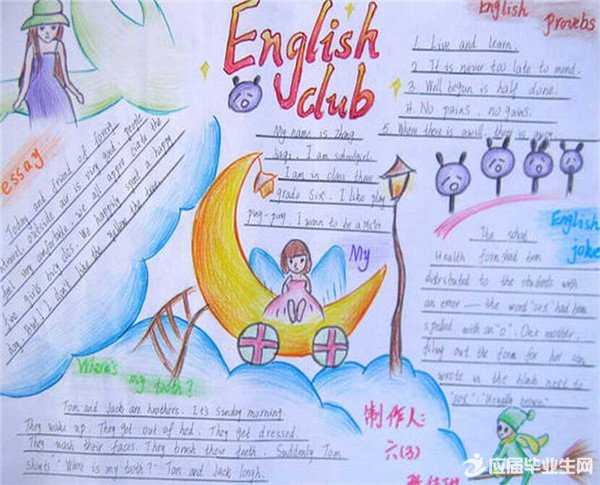 English
club
English proverbs
1. Live and learn.
2. It is never too late to mend.
3. Well begun is half done.
4. No pains, no gains.
5. Where there is a will, there is
My name is Zhang
I am
I am in class three
grade six. I like play
ping-pong. I want to be a
My
essay
Today and friend of
outside air is very good. people
feel very comfortable. we all
girls We happily spend a happy
day. But I don't like the
English
joke
The
Health form had been
distributed to the students with
an error — the word "sex" had been
spelled with an "o". One mother,
filling out the form for her son
wrote in the blank next to
Where's
my tooth?
Tom and Jack are brothers. It's Sunday morning.
They wake up. They get out of bed. They get dressed.
They wash their faces. They brush there teeth. Suddenly Tom
" Where is my Tom and Jack
制作人:
六(3)
应届毕业生网